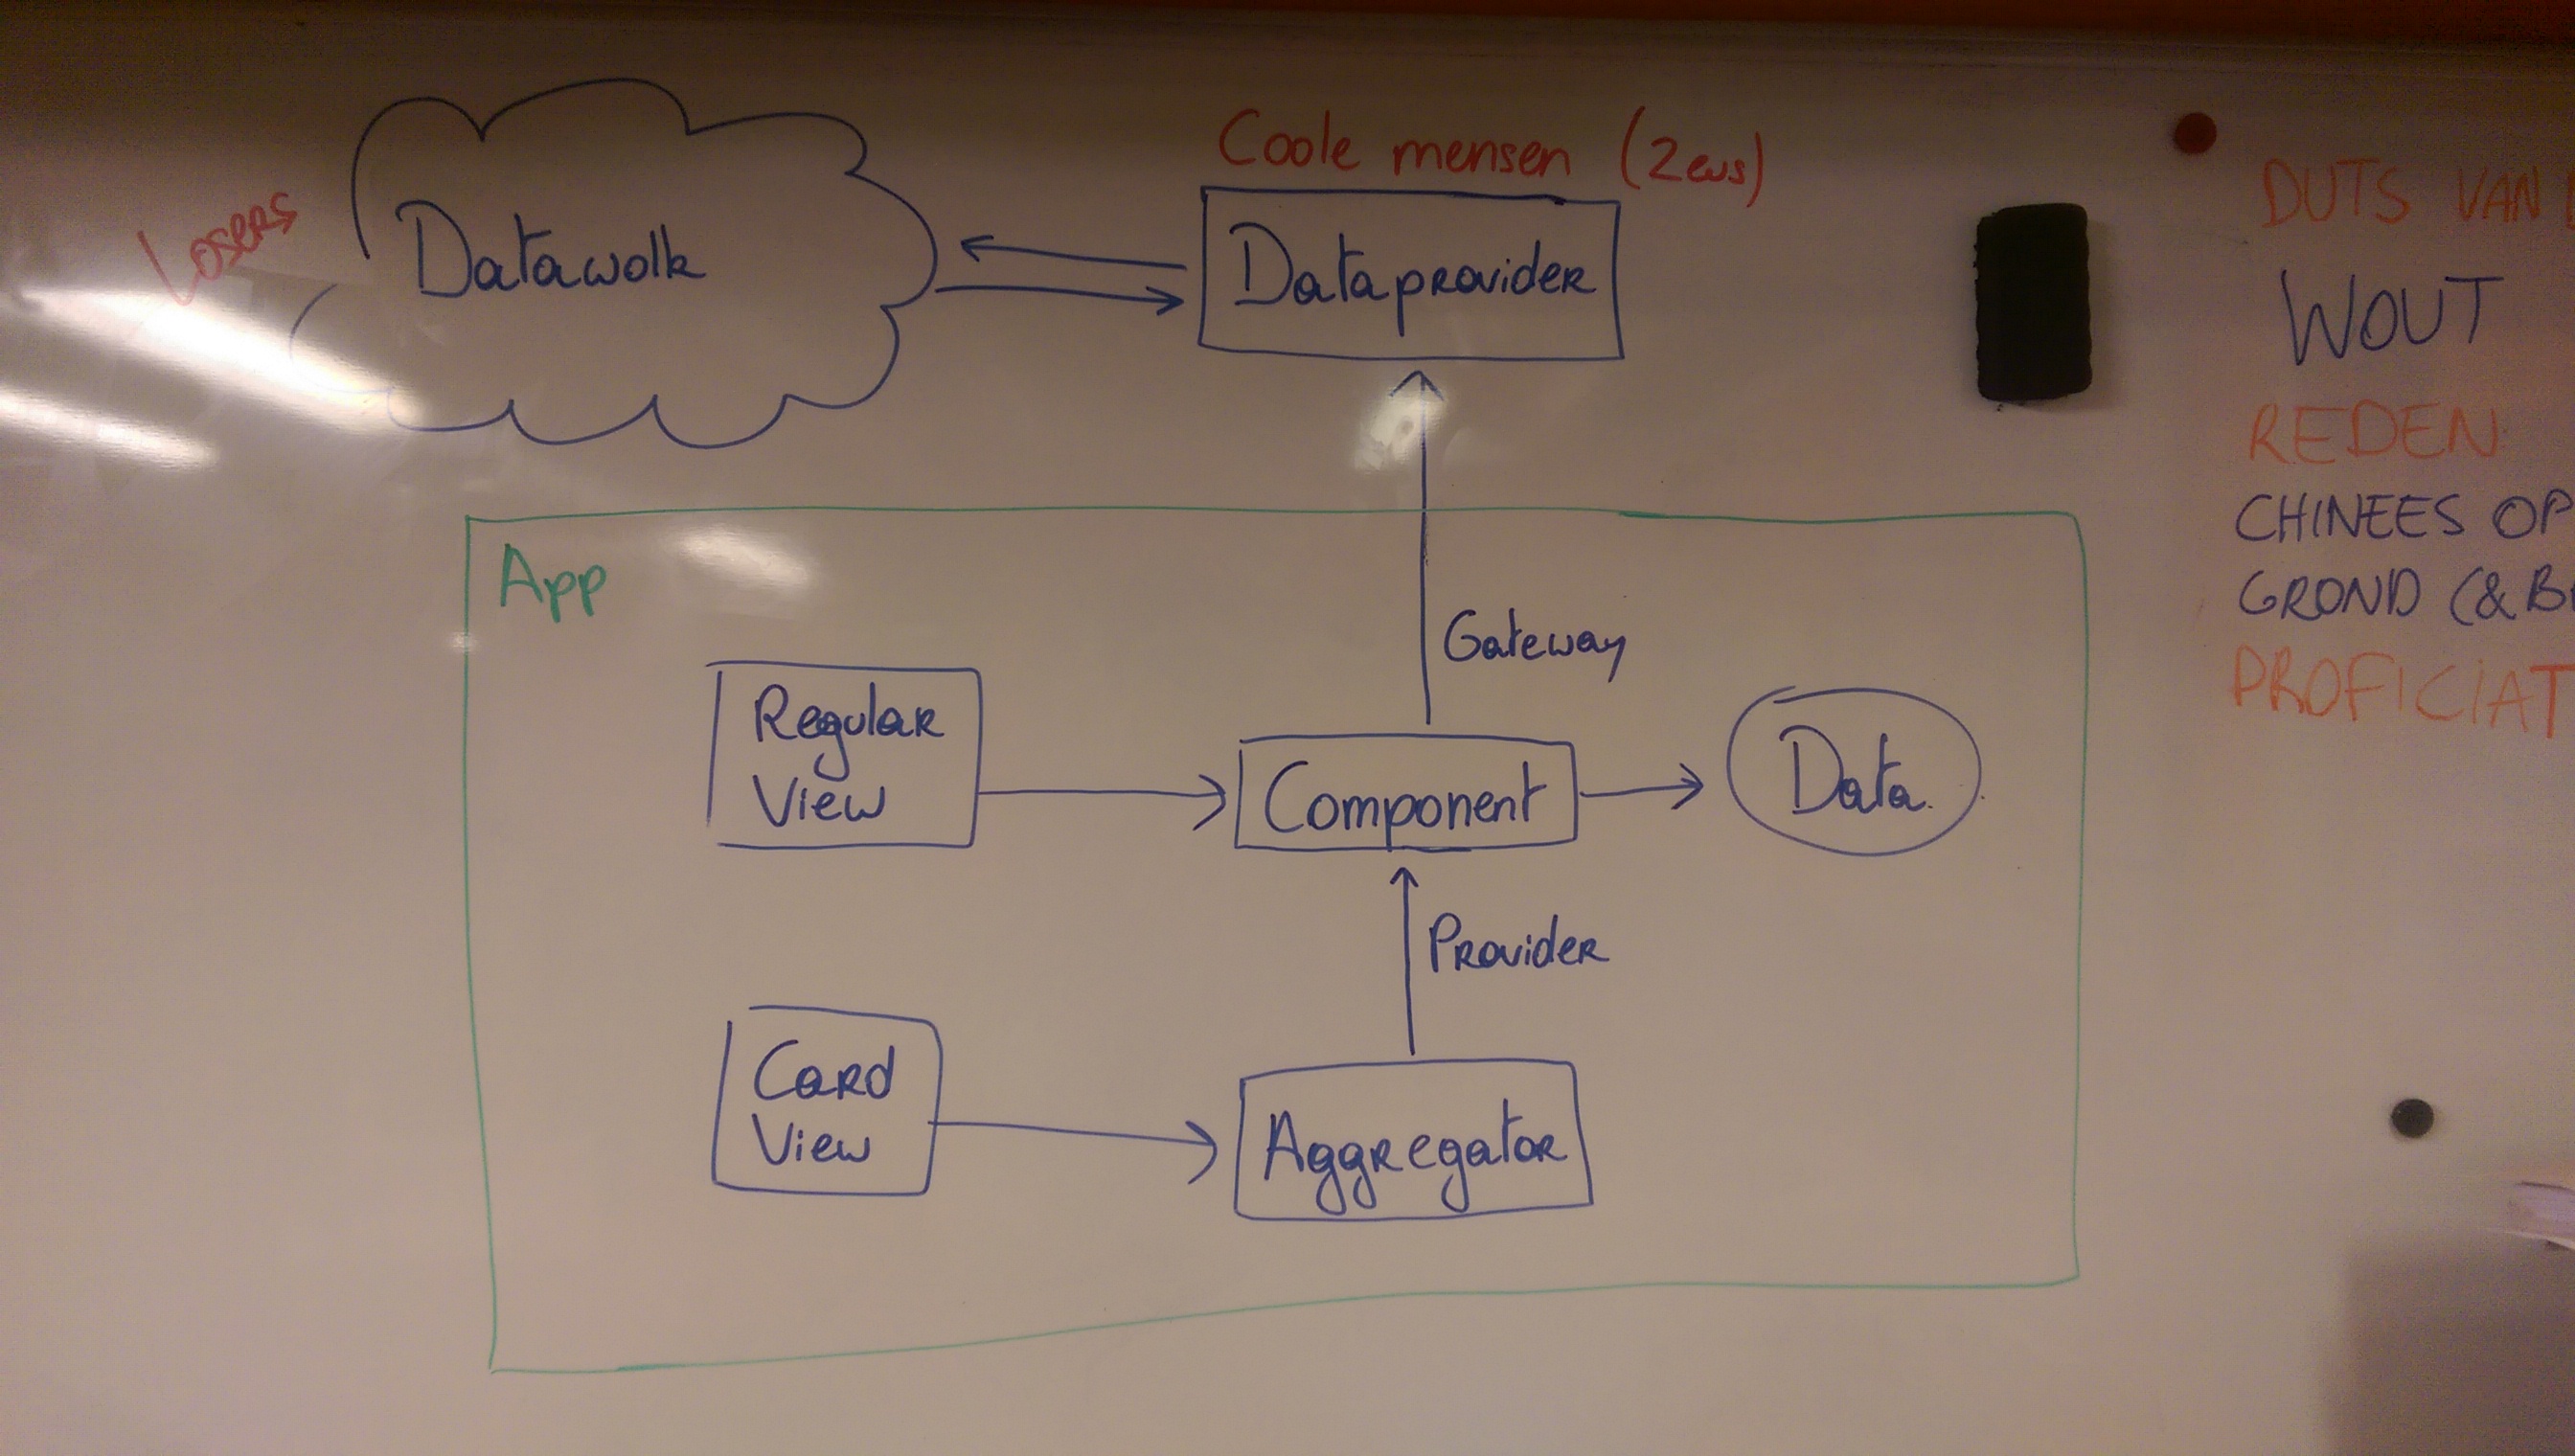 Losers
Datawolk
Coole mensen (Zeus)
Dataprovider
App
Gateway
Regular
View
Component
Data
Provider
Card
View
Aggregator
DUTS VAN
WOUT
REDEN
CHINEES OP
GROND (&
PROFICIAT